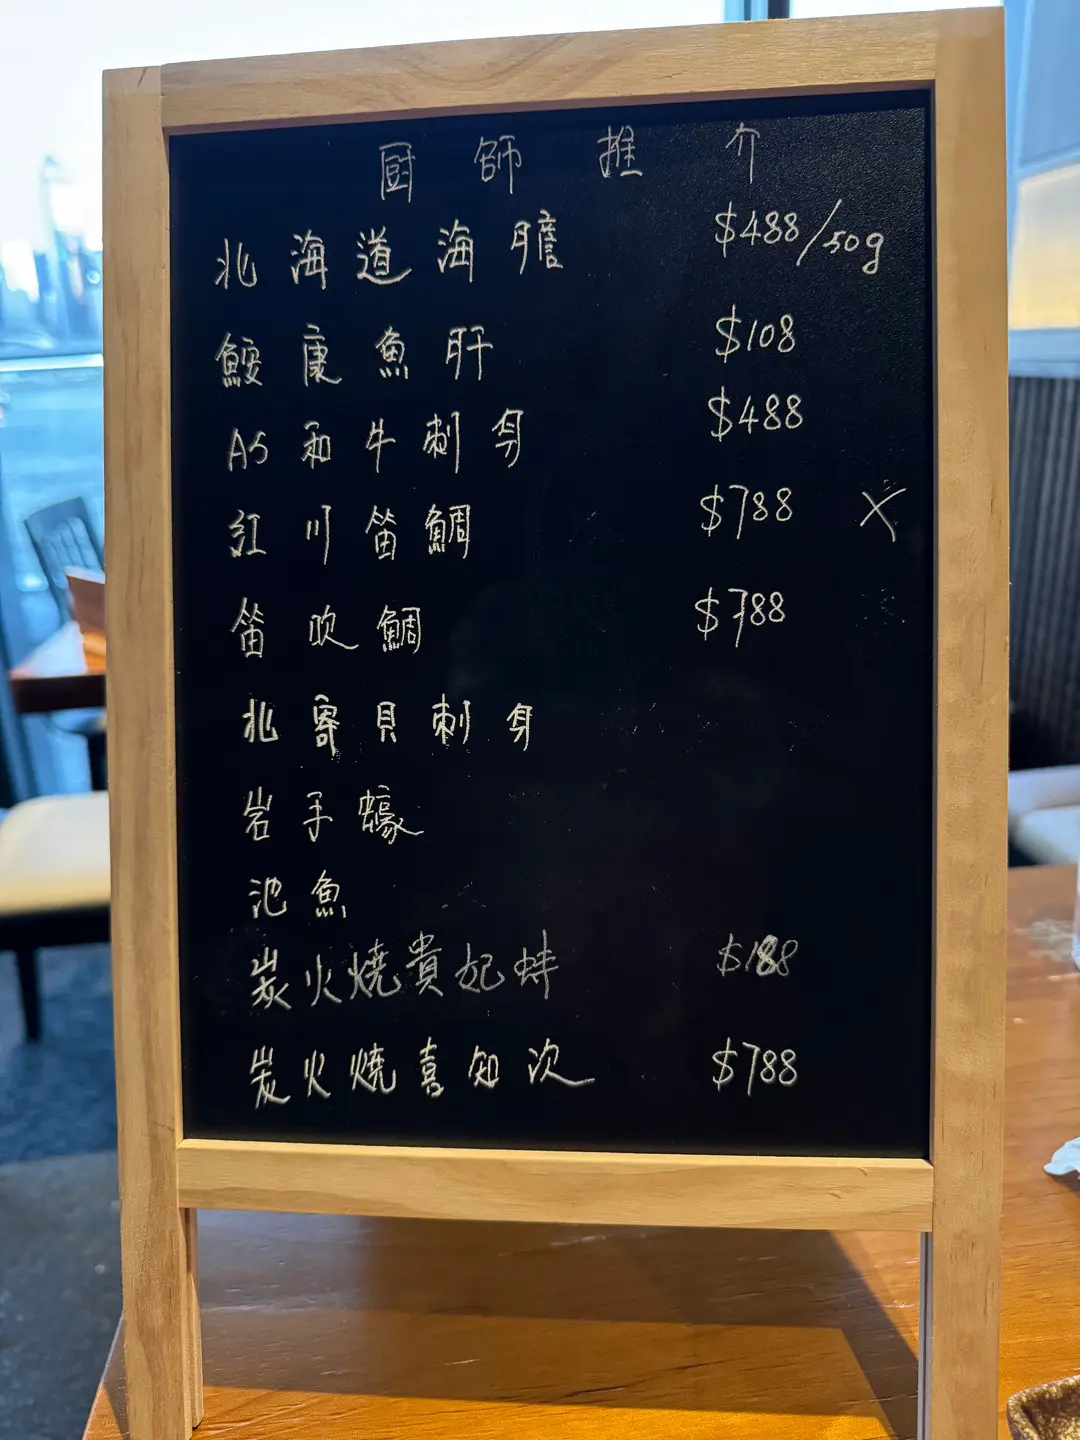 廚師推介
北海道海膽 $488/50g
鮟康魚肝 $108
A5和牛刺身 $488
紅川笛鯛 $788 X
笛吹鯛 $788
北寄貝刺身
岩手蠔
池魚
炭火燒貴妃蚌 $188
炭火燒喜知次 $788